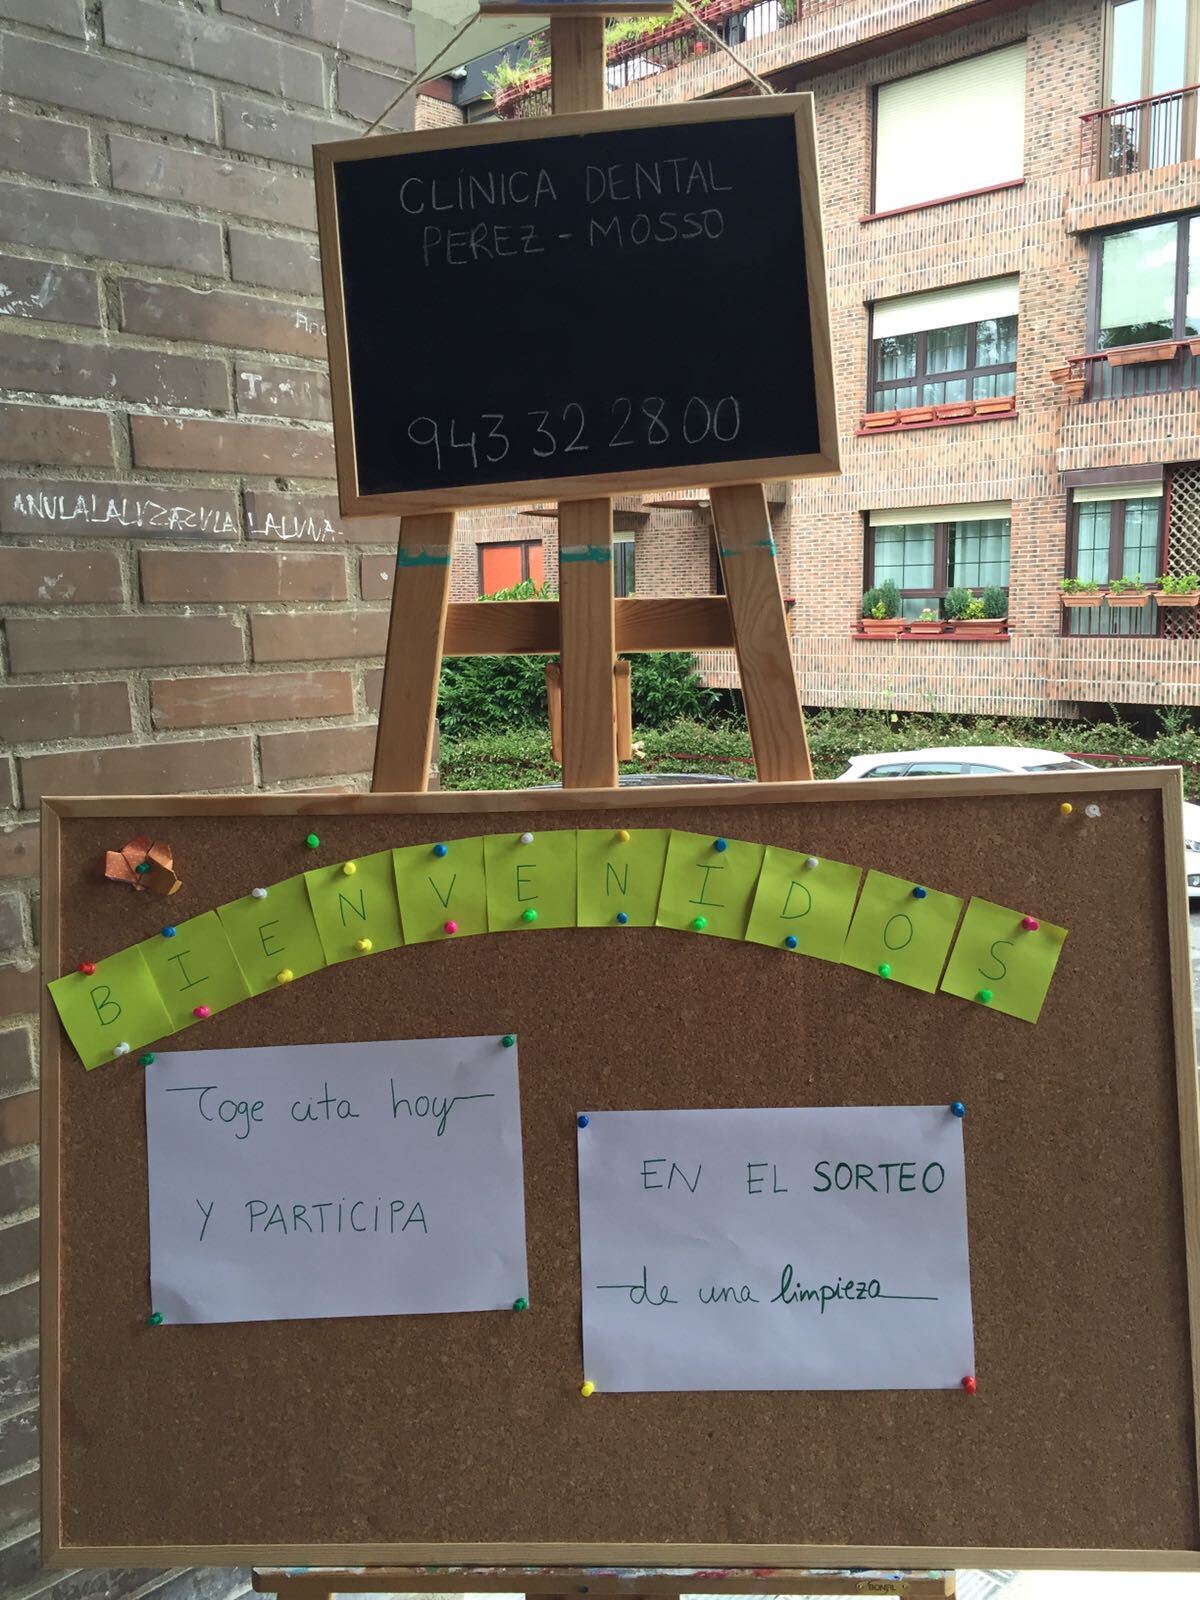 CLÍNICA DENTAL
PEREZ - MOSSO
943 32 28 00
BIENVENIDOS
Coge cita hoy
Y PARTICIPA
EN EL SORTEO
de una limpieza
LALUNA